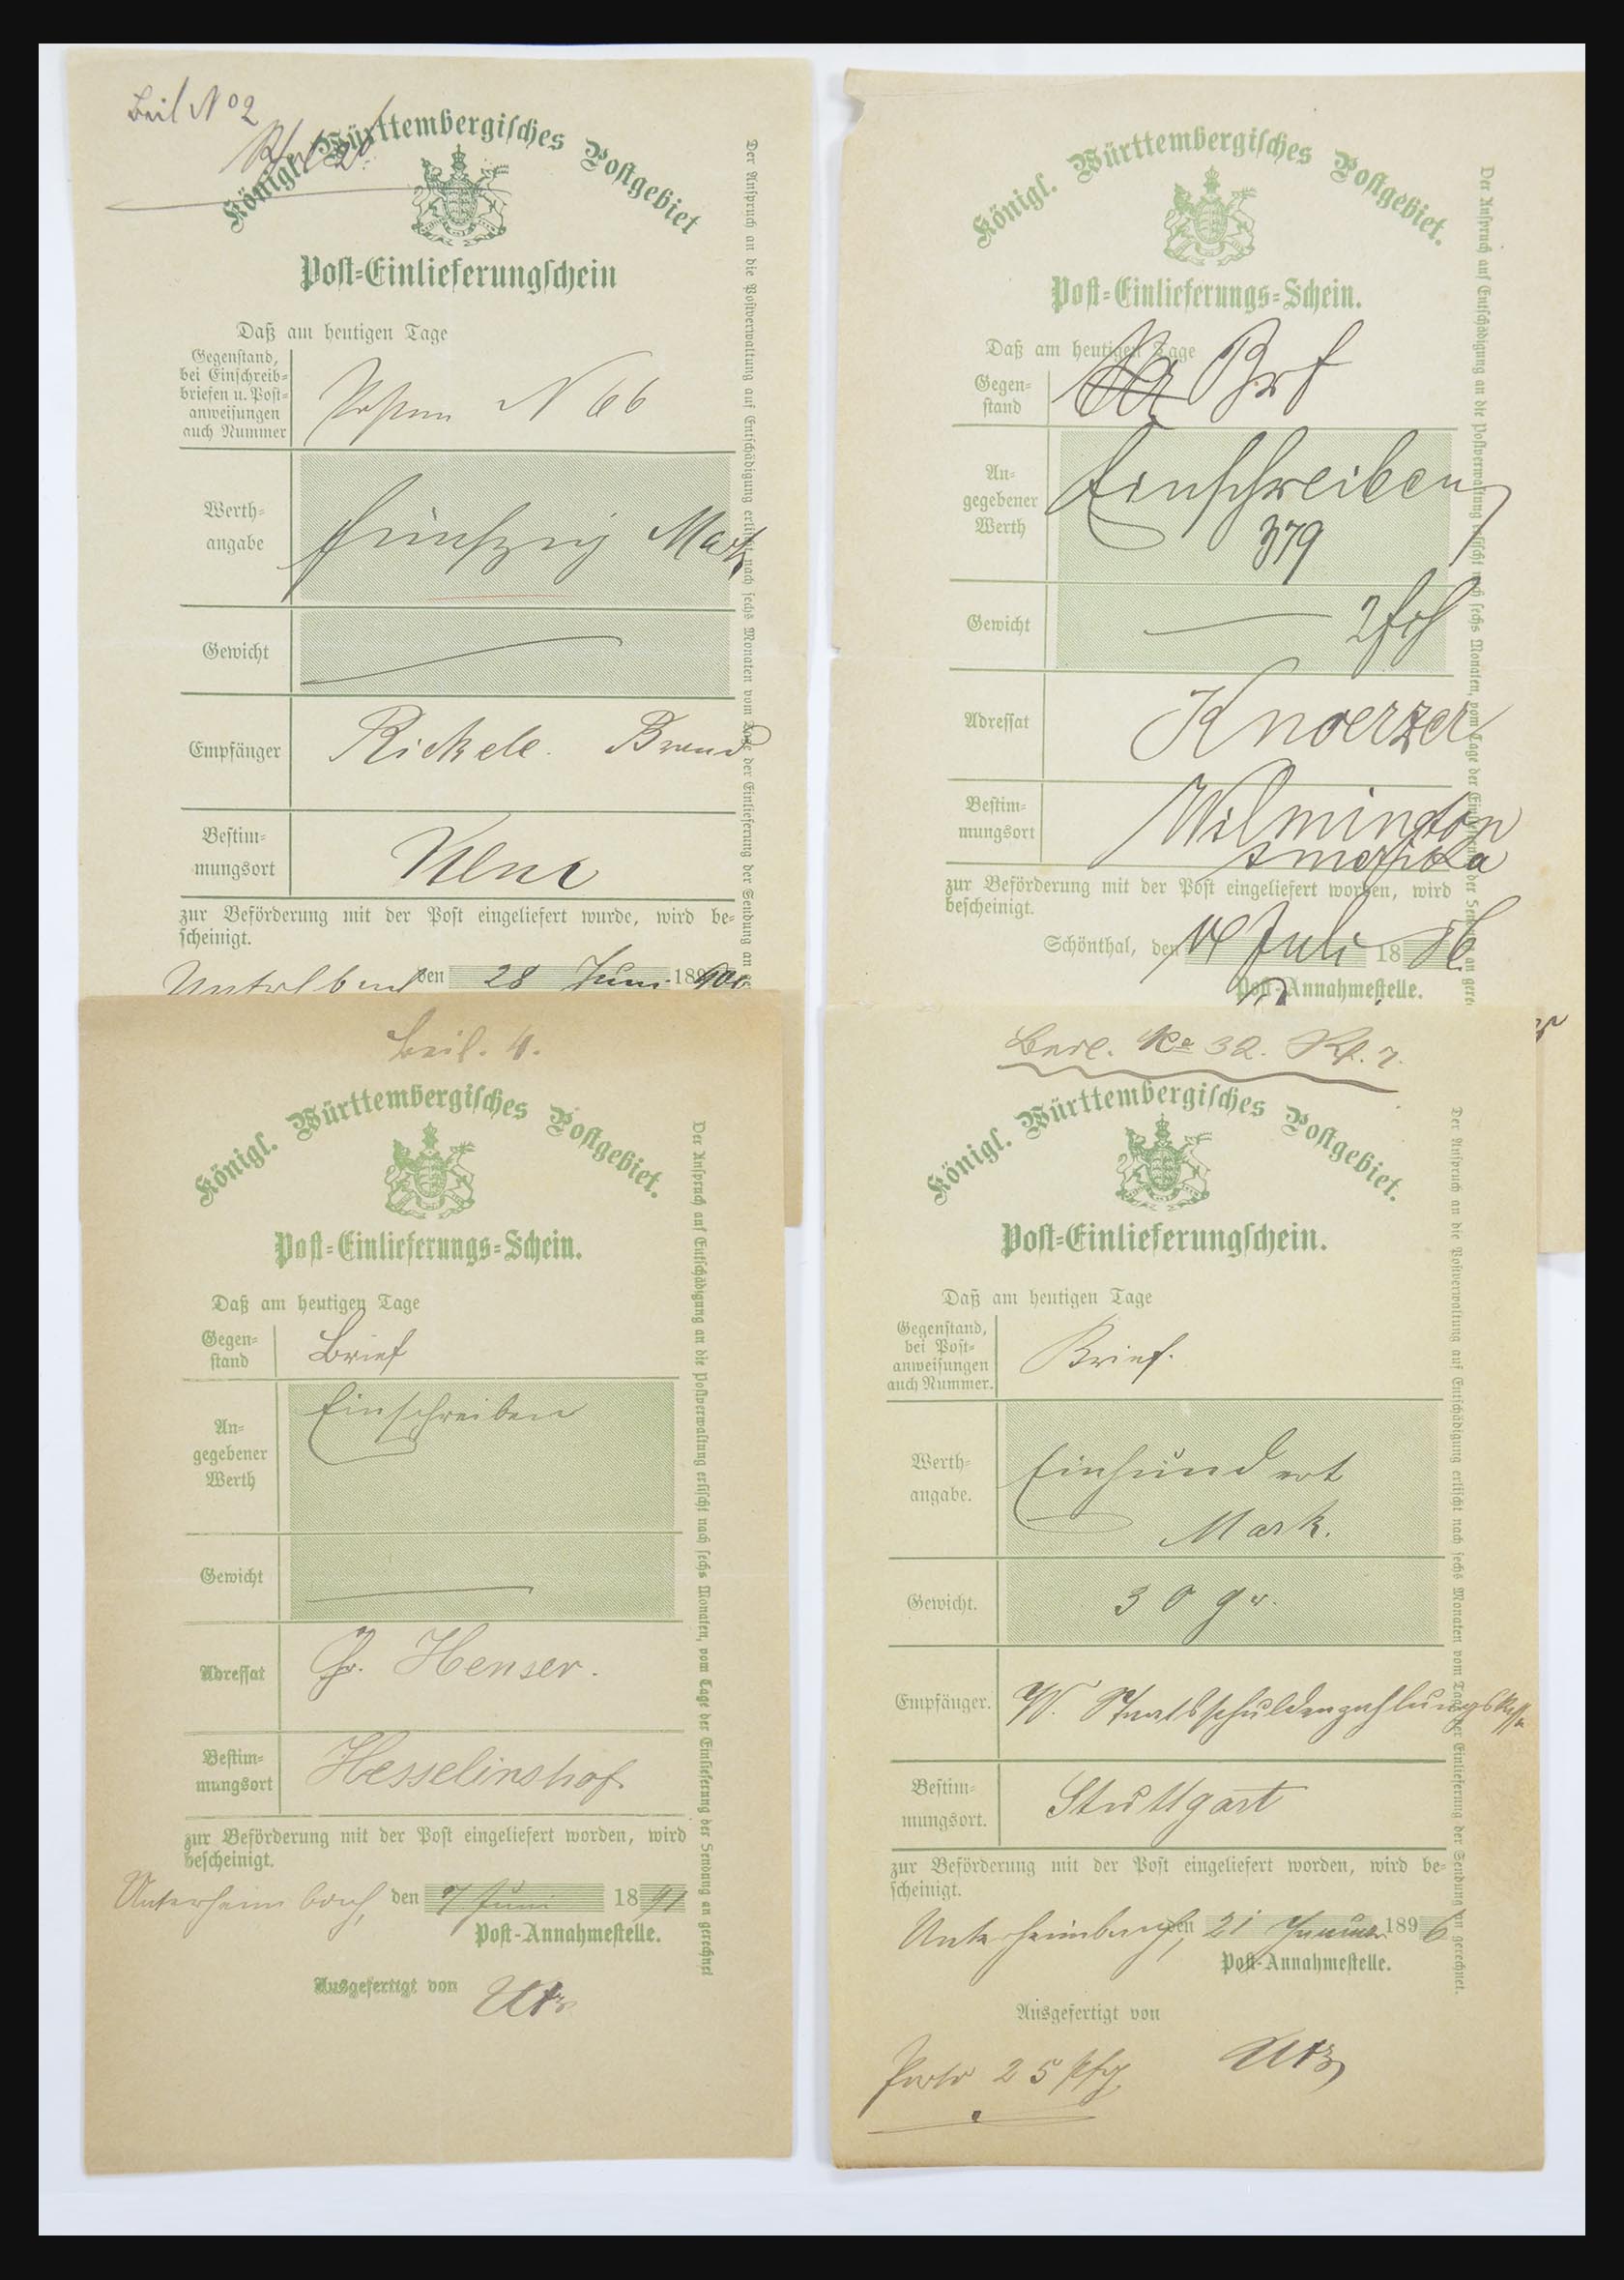 Beil No 2
Königl. Württembergisches Postgebiet
Post-Einlieferungschein
Daß am heutigen Tage
Gegenstand,
bei Einschreib-
briefen u. Post-
anweisungen
auch Nummer
N 66
Werth-
angabe
fünfzig Mark
Gewicht
Empfänger
Rickele
Bestim-
mungsort
zur Beförderung mit der Post eingeliefert wurde, wird be-
scheinigt.
den 28 Juni 189
Der Anspruch an die Postverwaltung auf Entschädigung erlischt nach sechs Monaten vom Tage der Einlieferung der Sendung an
Königl. Württembergisches Postgebiet.
Post-Einlieferungs-Schein.
Daß am heutigen Tage
Gegen-
stand
Brf
An-
gegebener
Werth
Einschreiben
379
Gewicht
Adressat
Knoerzer
Bestim-
mungsort
Wilmington
Amerika
zur Beförderung mit der Post eingeliefert worden, wird
bescheinigt.
Schönthal, den Juli 18
Post-Annahmestelle.
Der Anspruch auf Entschädigung an die Postverwaltung erlischt nach sechs Monaten, vom Tage der Einlieferung der Sendung an gere
Beil. 4.
Königl. Württembergisches Postgebiet.
Post-Einlieferungs-Schein.
Daß am heutigen Tage
Gegen-
stand
Brief
An-
gegebener
Werth
Einschreiben
Gewicht
Adressat
Henser.
Bestim-
mungsort
Hesselinshof.
zur Beförderung mit der Post eingeliefert worden, wird
bescheinigt.
Unterheimbach, den 7 Juni 18 91
Post-Annahmestelle.
Ausgefertigt von Utz
Der Anspruch auf Entschädigung an die Postverwaltung erlischt nach sechs Monaten, vom Tage der Einlieferung der Sendung an gerechnet
Beil. No 32.
Königl. Württembergisches Postgebiet.
Post-Einlieferungschein.
Daß am heutigen Tage
Gegenstand,
bei Post-
anweisungen
auch Nummer.
Brief.
Werth-
angabe.
Einhundert
Mark.
Gewicht.
30 gr.
Empfänger.
W. Staatsschuldenzahlungskasse
Bestim-
mungsort.
Stuttgart
zur Beförderung mit der Post eingeliefert worden, wird be-
scheinigt.
Unterheimbach, den 21 Januar 1896
Post-Annahmestelle.
Ausgefertigt von
Utz
Porto 25 Pfg.
Der Anspruch an die Postverwaltung auf Entschädigung erlischt nach sechs Monaten vom Tage der Einlieferung der Sendung an gerechnet.